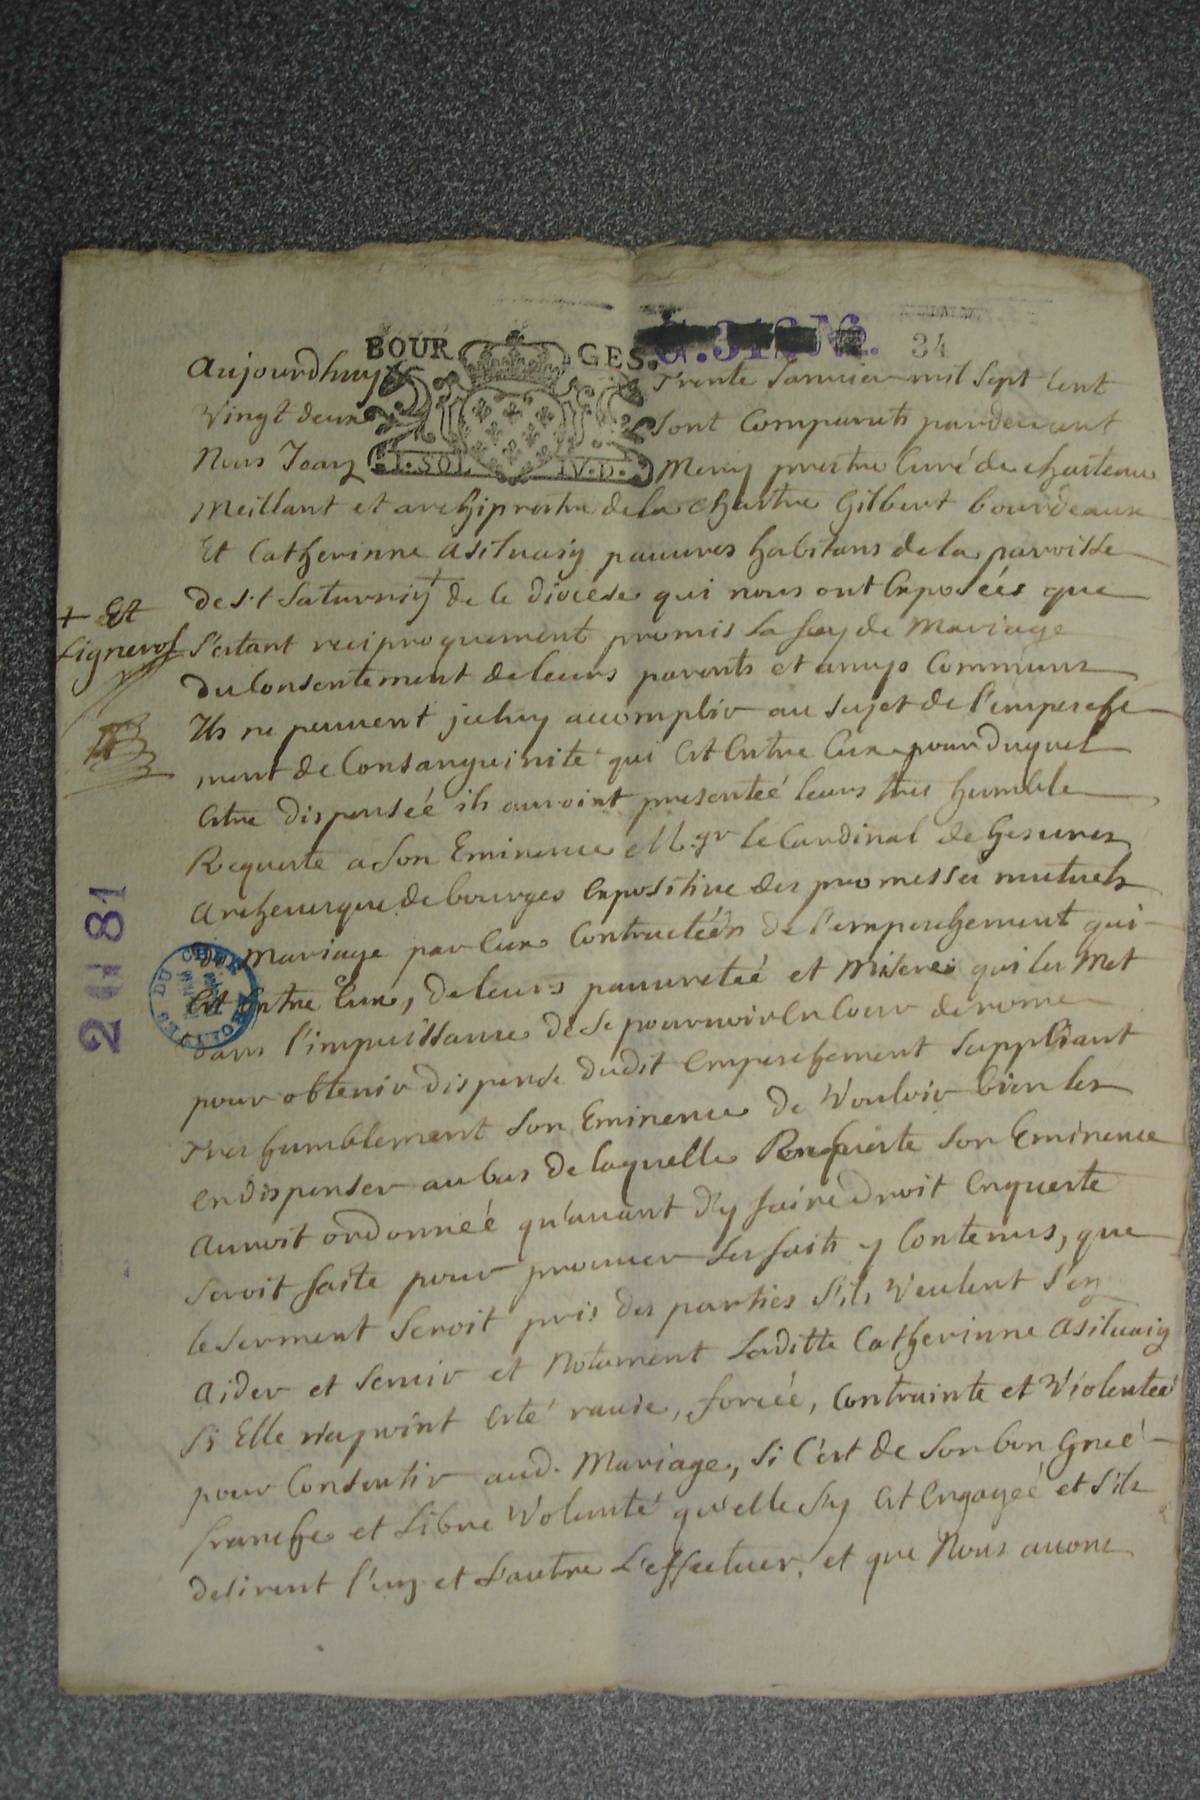 BOUR GES.
34
I. SOL IV. D.
Aujourdhuy Trente Januier mil Sept Cent
Vingt deux Sont Comparuts pardeuant
Nous Jean Mercy prestre Curé de Chasteau
Meillant et archiprestre dela Chastre Gilbert bourdeaux
Et Catherinne asiluain pauures habitans de la paroisse
de S.t Saturnin + de Ce diocese qui nous ont Exposéés que
+ Et
Ligneroll
S'estant reciproquement promis La foy de Mariage
du Consentement de leurs parents et amys Communs
Ils ne peuuent jceluy accomplir au Sujet de l'empesche
ment de Consanguinité qui Est Entre Eux pour duquel
Estre dispenséé ils auroint presentéé leurs tres humble
Requeste a Son Eminence M.gr le Cardinal de Gesures
Archeuesque de bourges Expositiue des promesses mutuels
de Mariage par Eux Contractéés de l'empeschement qui
Est Entre Eux, de leurs pauuretéé et Miseres qui les Met
dans l'impuissance de Se pouruoir En Cour de rome
pour obtenir dispense dudit Empeschement Suppliant
Tres humblement Son Eminence de Vouloir bien les
en dispenser au bas de laquelle Requeste Son Eminence
Auroit ordonnéé qu'auant d'y faire droit Enqueste
Seroit faite pour prouuer Les faits y Contenus, que
le Serment Seroit pris des parties S'ils Veulent S'en
Aider et Seruir et Notament Laditte Catherinne asiluain
Si Elle n'a point Esté rauie, forcéé, Contrainte et Violentéé
pour Consentir aud. Mariage, Si C'est de Son bon Gréé
franche et Libre Volonté qu'elle S'y Est Engagéé et S'ils
desirent l'un et L'autre L'effectuer, et que Nous auons
2 II 81
ARCHIVES DU CHER